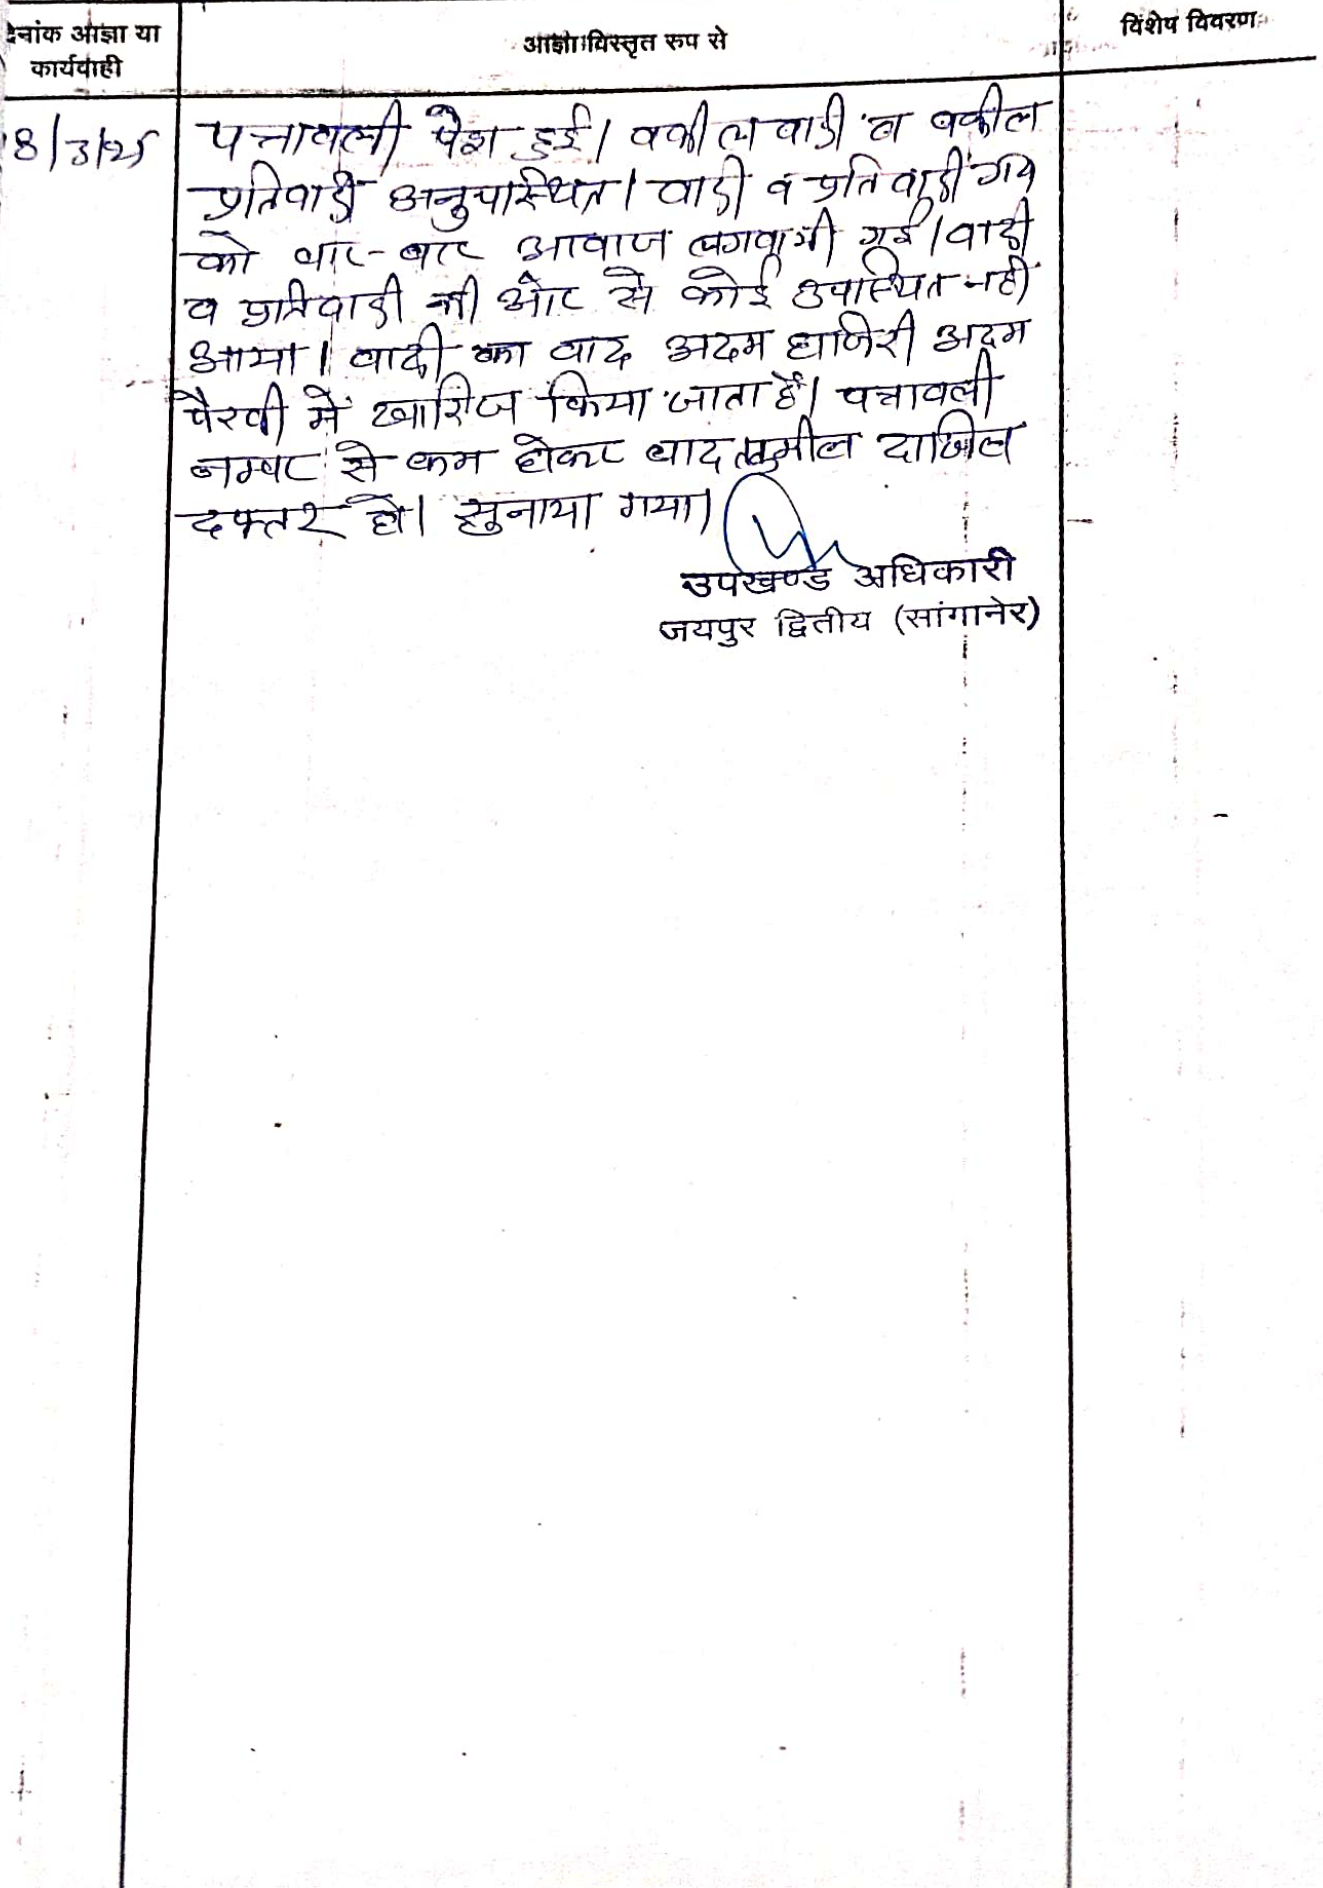 दिनांक आज्ञा या
कार्यवाही
आज्ञा विस्तृत रुप से
विशेष विवरण
18/3/25
पत्रावली पेश हुई। वकील वादी व वकील
प्रतिवादी अनुपस्थित। वादी व प्रतिवादी गण
को बार-बार आवाज लगवायी गई। वादी
व प्रतिवादी की ओर से कोई उपस्थित नहीं
आया। वादी का वाद अदम हाजिरी अदम
पैरवी में खारिज किया जाता है। पत्रावली
नम्बर से कम होकर बाद तकमील दाखिल
दफ्तर हो। सुनाया गया।
उपखण्ड अधिकारी
जयपुर द्वितीय (सांगानेर)